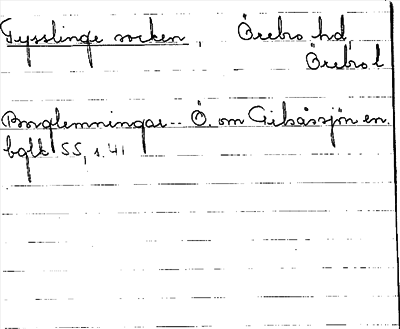 Tysslinge socken, Örebro hd,
Örebro l
Borglemningar -- Ö. om Gibåssjön en
bglt SS, 1.41